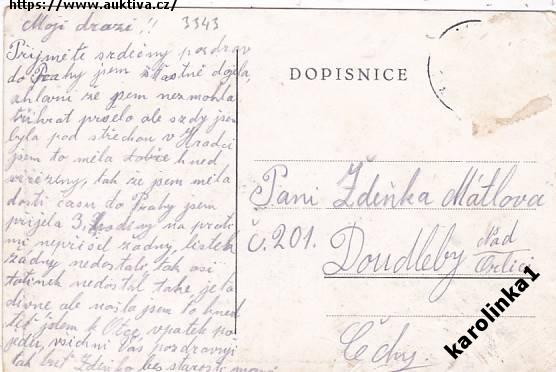 https://www.auktiva.cz/
Moji drazí!! 3343
Přijměte srdečný pozdrav
do Prahy jsem šťastně dojela,
ahlavní že jsem nezmohla
třikrat pršelo ale vzdy jsem
byla pod střechou v Hradci
jsem to měla dobře hned
vířízeny, tak že jsem měla
dosti času do Prahy jsem
přijela 3. hodiny na proti
mi nepřišel žádny, lístek
žádny nedostali, tak asi
tatínek nedostal take je to
divne ale našla jsem to hned
teť jdem k Otce vpátek po
jedu, všichni Vás pozdravují
tak buť Zdenko bes starosti
DOPISNICE
Paní Zdeňka Mátlova
č. 201.
Doudleby Nad Orlicí
Čechy.
karolinka1